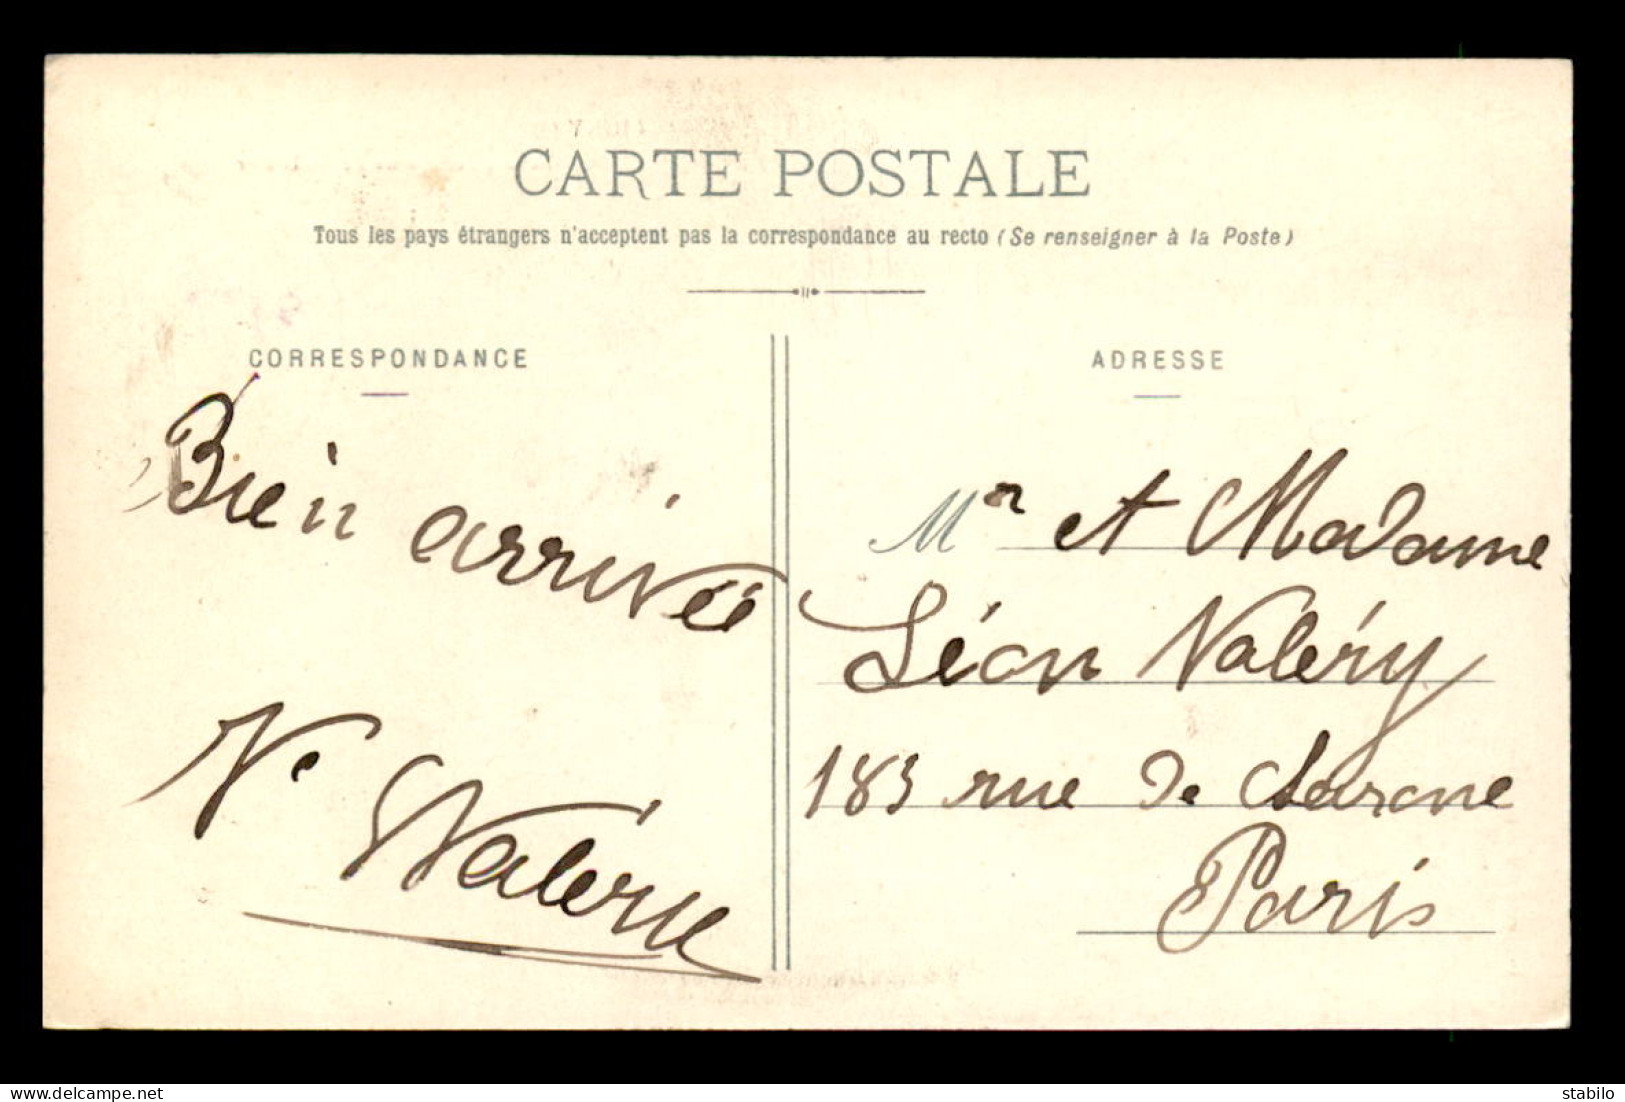 CARTE POSTALE
Tous les pays étrangers n'acceptent pas la correspondance au recto (Se renseigner à la Poste)
CORRESPONDANCE
Bien arrivée
Vve Valérie
ADRESSE
Mr et Madame
Léon Valéry
183 rue de Charone
Paris
www.delcampe.net
stabilo